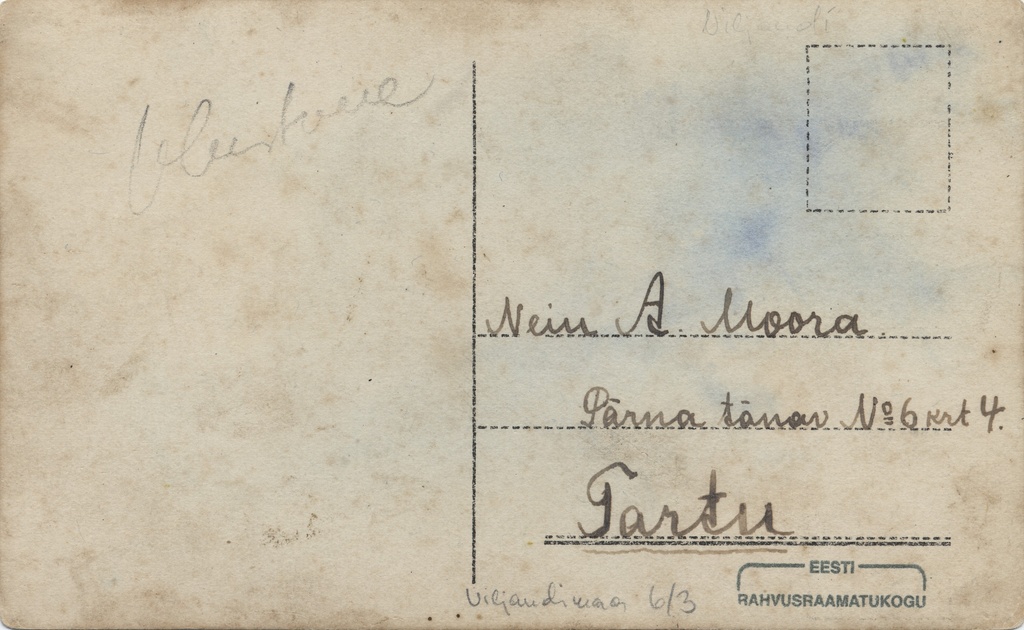 Viljandi
Neiu A. Moora.
Pärna tänav № 6 krt 4.
Tartu
Viljandimaa 6/3
EESTI
RAHVUSRAAMATUKOGU